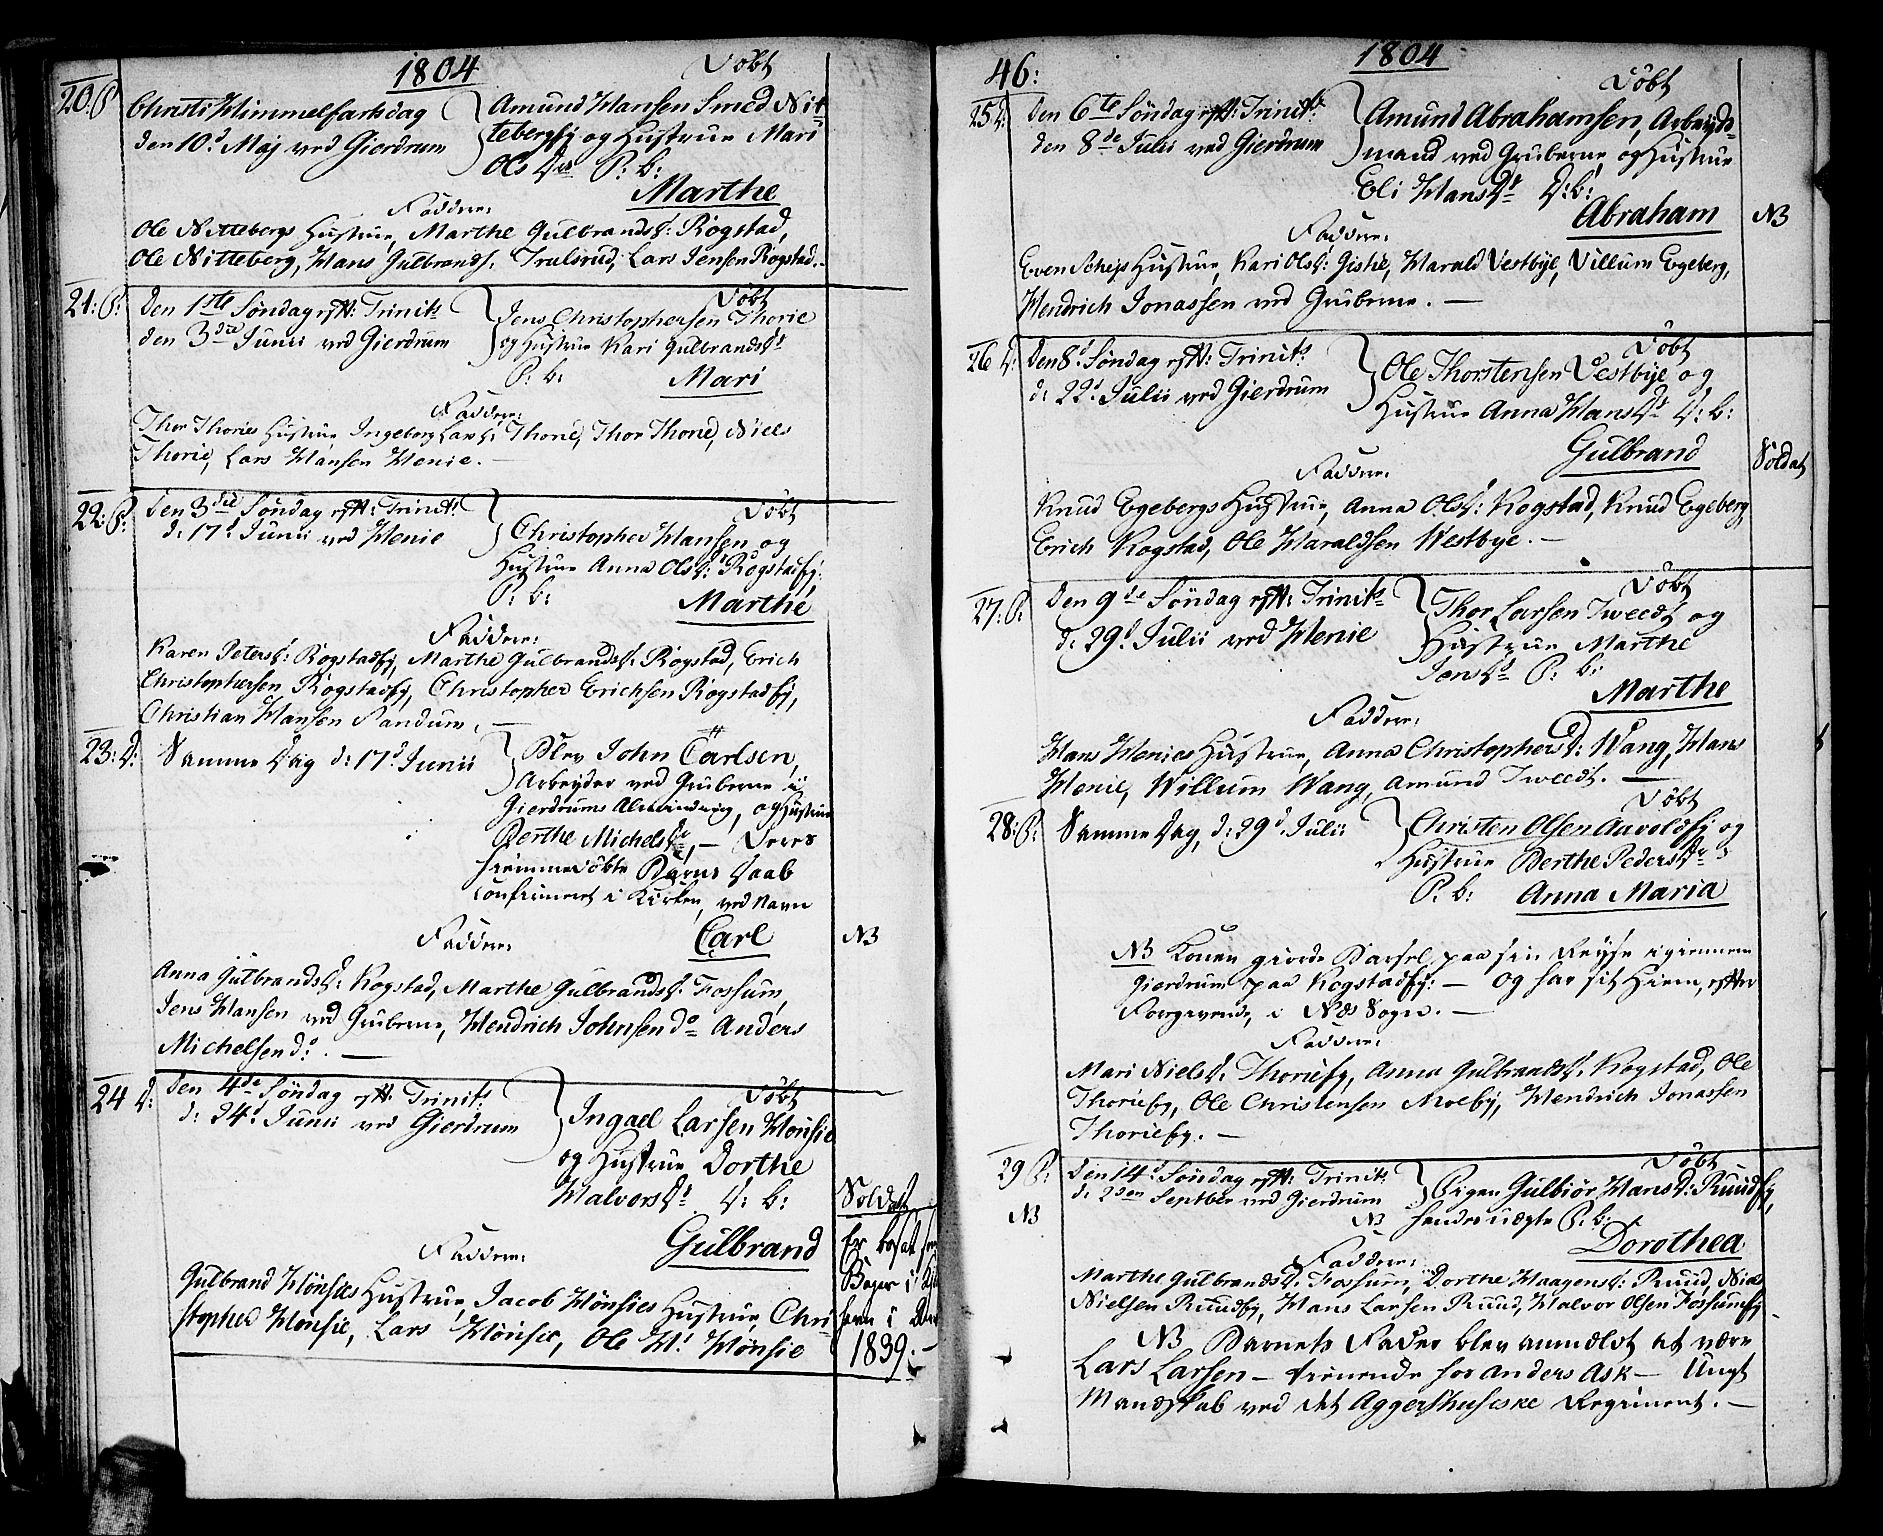 1804
Døbt
20. P. Christi Himmelfartsdag
den 10d Maj ved Gierdrum
Amund Hansen Smed Nit-
tebergfj og Hustrue Mari
Ols Dtr P: b:
Marthe
Faddere:
Ole Nittebergs Hustrue, Marthe Gulbrandsd: Rogstad,
Ole Nitteberg, Hans Gulbrands. Trulsrud, Lars Jensen Rogstad.
21: P: Den 1ste Søndag eft: Trinit:
den 3die Junii ved Gierdrum
Døbt
Jens Christophersen Thorie
og Hustrue Kari Gulbrandsd
P: b:
Mari
Faddere:
Thor Thories Hustrue Ingeborg Larsd: Thorie, Thor Thorie, Niels
Thorie, Lars Hansen Henie. —
22: P: Den 3die Søndag eft: Trinit:
d: 17d Junii ved Henie
Døbt
Christopher Hansen og
Hustrue Anna Olsd: Rogstadfj:
P: b:
Marthe
Faddere:
Karen Petersd: Rogstadfj, Marthe Gulbrandsd: Rogstad, Erich
Christophersen Rogstadfj, Christopher Erichsen Rogstadfj,
Christian Hansen Sandum. —
23: D: Samme Dag d: 17d Junii
Blev John Carlsen,
Arbeyder ved Gruberne i
Gierdrums Alminding, og Hustrue
Berthe Michelsdr, — Deres
hiemmedøbte Barns Daab
confirmeret i Kirken, ved Navn
Carl
NB
Faddere:
Anna Gulbrandsd: Rogstad, Marthe Gulbrandsd. Fossum,
Jens Hansen ved Gruberne, Hendrich Johnsen do Anders
Michelsen do. —
24 D: Den 4de Søndag eft: Trinit:
d: 24d Junii ved Gierdrum
Døbt
Ingael Larsen Hønsie
og Hustrue Dorthe
Halvorsdr D: b:
Gulbrand
Soldat
Er bosat som
i
i
1839. —
Faddere:
Gulbrand Hønsies Hustrue, Jacob Hønsies Hustrue, Chri-
stopher Hønsie, Lars Hønsie, Ole H: Hønsie
46:
1804
Døbt
25 D: Den 6te Søndag eft: Trinit:
den 8de Julii ved Gierdrum
Amund Abrahamsen, Arbeyds-
mand ved Gruberne og Hustrue
Eli Hansdr D: b:
Abraham
NB
Faddere:
Even Hustrue, Kari Olsd: Harald Vestbye, Villum Egeberg,
Hendrich Jonassen ved Gruberne. —
26 D: Den 8d Søndag eft: Trinit:
d: 22d Julii ved Gierdrum
Døbt
Ole Thorstensen Vestbye og
Hustrue Anna Hansdr D: b:
Gulbrand
Soldat
Faddere:
Knud Egebergs Hustrue, Anna Olsd: Rogstad, Knud Egeberg,
Erich Rogstad, Ole Haraldsen Westbye. —
27: P: Den 9de Søndag eft: Trinit:
d: 29d Julii ved Henie
Døbt
Thor Larsen Tweedt og
Hustrue Marthe
Jensdr P: b:
Marthe
Faddere:
Hans Henies Hustrue, Anna Christophersd: Wang, Hans
Henie, Willum Wang, Amund Tweedt. —
28: P: Samme Dag, d: 29d Julii
Døbt
Christen Olsen Aavoldfj og
Hustrue Berthe Pedersdr
P: b: Anna Maria
NB Konen giorde Barsel paa sin Reyse igiennem
Gierdrum paa Rogstadfj: — og har sit Hiem, efter
Forgivende, i Næs Sogn. —
Faddere:
Mari Nielsd. Thoriefj, Anna Gulbrandsd. Rogstad, Ole
Thoriefj, Ole Christensen Moeby, Hendrich Jonassen
Thoriefj. —
29 P: Den 14d Søndag eft: Trinit:
d: 2den Septber ved Gierdrum
NB
Døbt
Pigen Gulbiør Hansd: Ruudfj,
NB hendes uægte P: b:
Dorothea
Faddere:
Marthe Gulbrandsd: Fossum, Dorthe Haagensd: Ruud, Niels
Nielsen Ruudfj, Hans Larsen Ruud, Halvor Olsen Fossumfj.
NB Barnets Fader blev anmeldt at være
Lars Larsen — tienende hos Anders Ask — Ungt
Mandskab ved det Aggershusiske Regiment. —